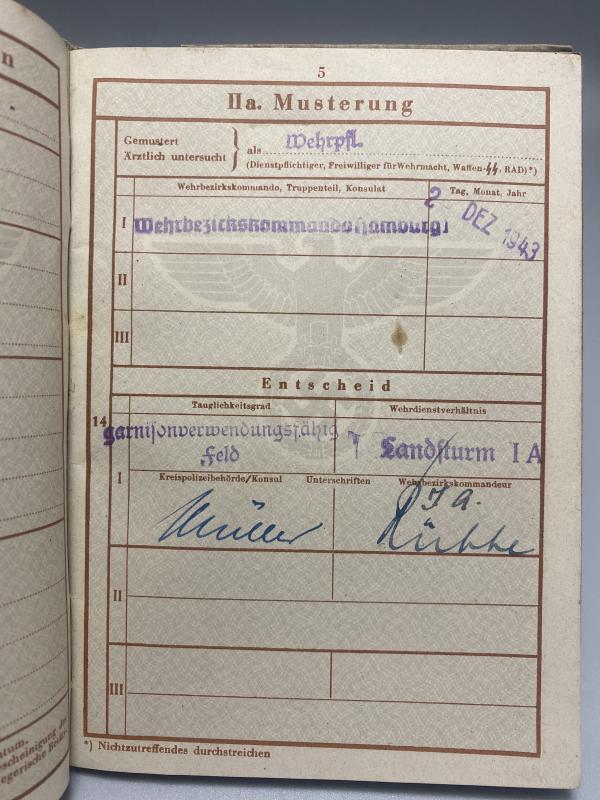 n
5
IIa. Musterung
Gemustert
Ärztlich untersucht } als Wehrpfl.
(Dienstpflichtiger, Freiwilliger für Wehrmacht, Waffen-ᛋᛋ, RAD)*)
Wehrbezirkskommando, Truppenteil, Konsulat Tag, Monat, Jahr
I Wehrbezirkskommando Hamburg 2. DEZ 1943
II
III
Entscheid
Tauglichkeitsgrad Wehrdienstverhältnis
14
garnisonverwendungsfähig
Feld Landsturm I A
I Kreispolizeibehörde/Konsul Unterschriften Wehrbezirkskommandeur
J A.
Müller
II
III
*) Nichtzutreffendes durchstreichen